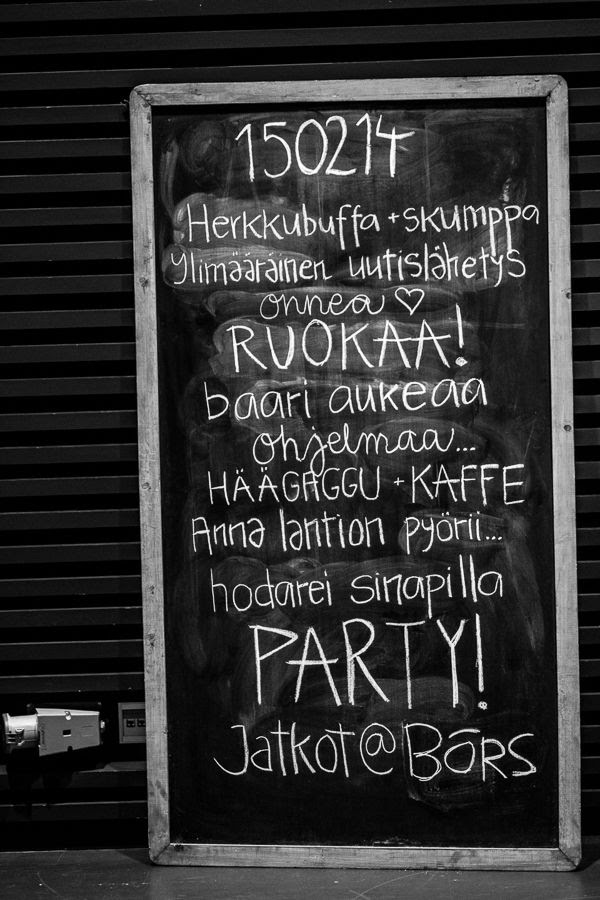 150214
Herkkubuffa + skumppa
Ylimääräinen uutislähetys
onnea ♡
RUOKAA!
baari aukeaa
ohjelmaa...
HÄÄGAGGU + KAFFE
Anna lantion pyörii...
hodarei sinapilla
PARTY!
Jatkot @ Börs